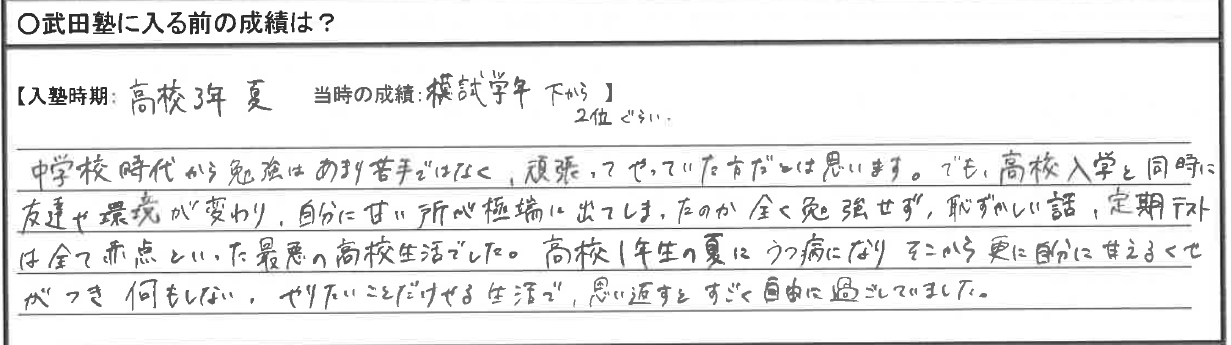 〇武田塾に入る前の成績は？
【入塾時期: 高校3年 夏 当時の成績: 模試学年 下から 】
2位ぐらい.
中学校時代から勉強はあまり苦手ではなく、頑張ってやっていた方だとは思います。でも、高校入学と同時に
友達や環境が変わり、自分に甘い所が極端に出てしまったのか全く勉強せず、恥ずかしい話、定期テスト
は全て赤点といった最悪の高校生活でした。高校1年生の夏にうつ病になりそこから更に自分に甘えるくせ
がつき何もしない、やりたいことだけやる生活で、思い返すとすごく自由に過ごしていました。